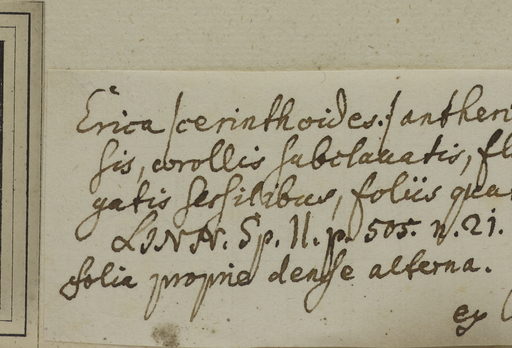 Erica /cerinthoides./ antheri
sis, corollis subclavatis, fl
gatis sessilibus, foliis qua
LINN. Sp. Pl. p. 505. n. 21.
folia proprie dense alterna.
ex